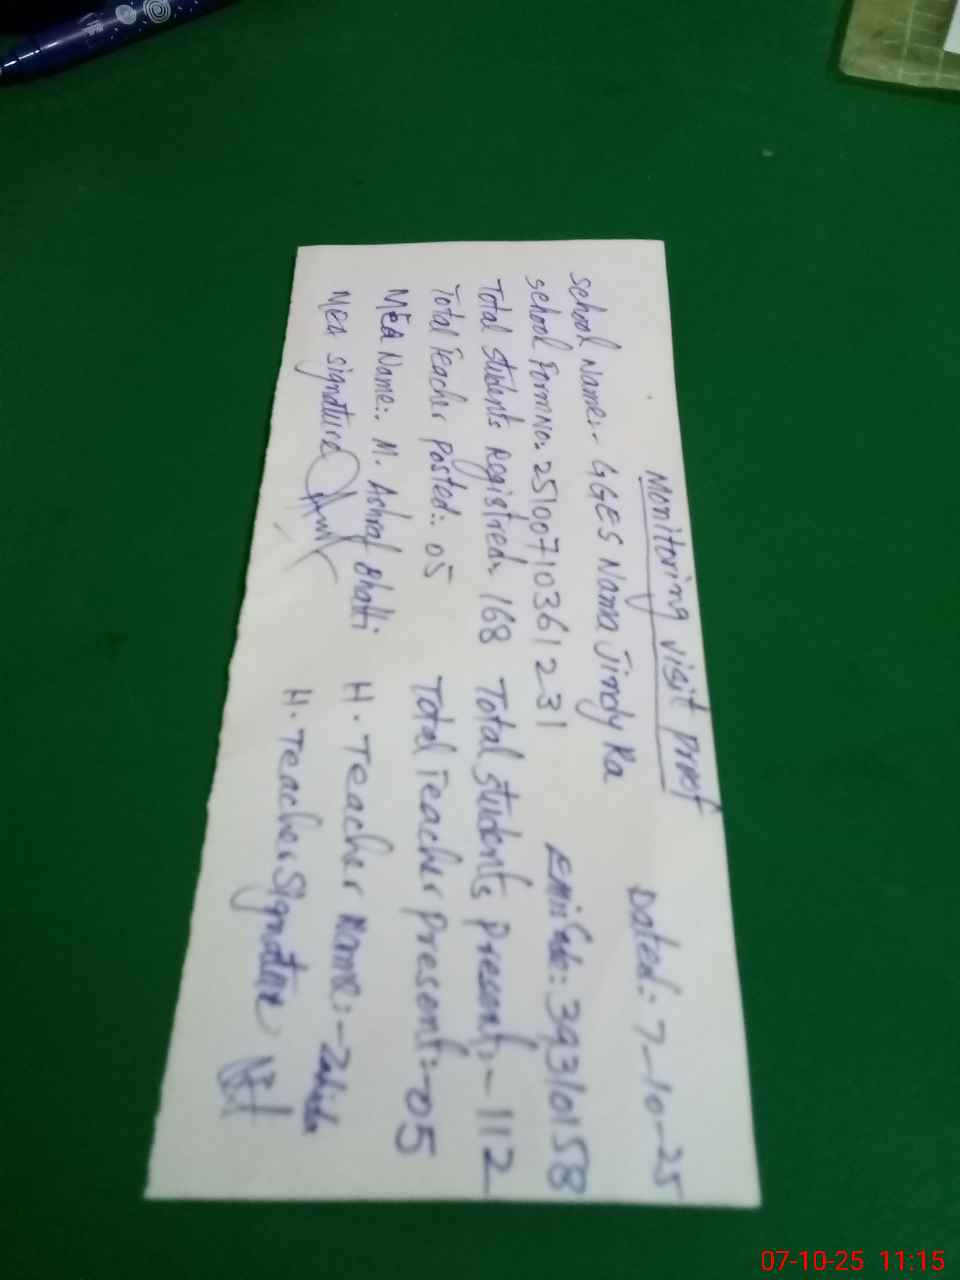 Monitoring visit Proof
Dated: 7-10-25
School Name:- GGES Nama Jindy Ka
School Form No: 25100710361231 Emis Code: 39310158
Total Students Registred: 168 Total students present:- 112
Total Teacher Posted:. 05 Total Teacher present:- 05
MEA Name:. M. Ashraf Bhatti H. Teacher Name:- Zahida
MEA Signature H. Teacher Signature
07-10-25 11:15